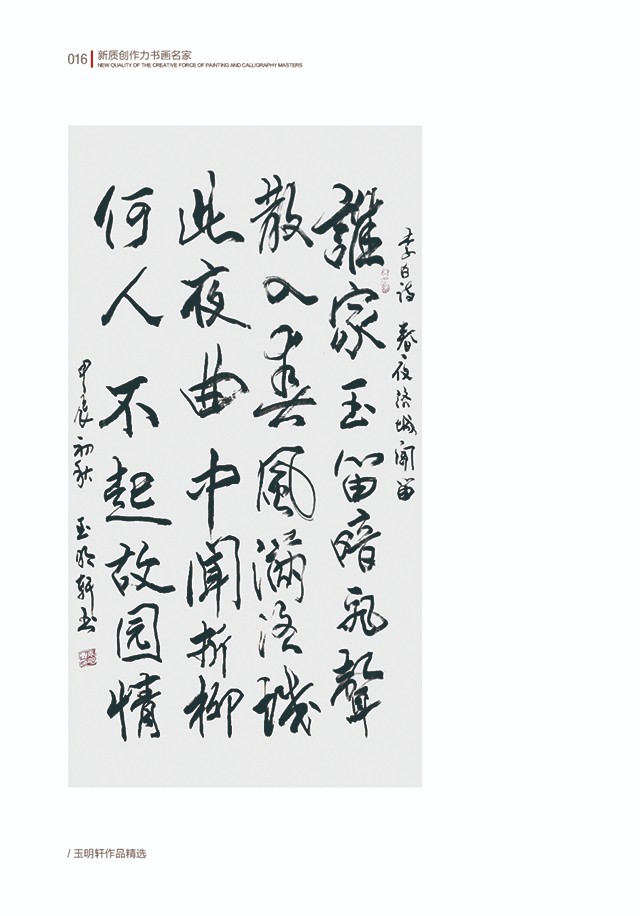 016
新质创作力书画名家
NEW QUALITY OF THE CREATIVE FORCE OF PAINTING AND CALLIGRAPHY MASTERS
李白诗 春夜洛城闻笛
誰家玉笛暗飛聲
散入春風滿洛城
此夜曲中聞折柳
何人不起故园情
甲辰初秋 玉明轩书
/ 玉明轩作品精选